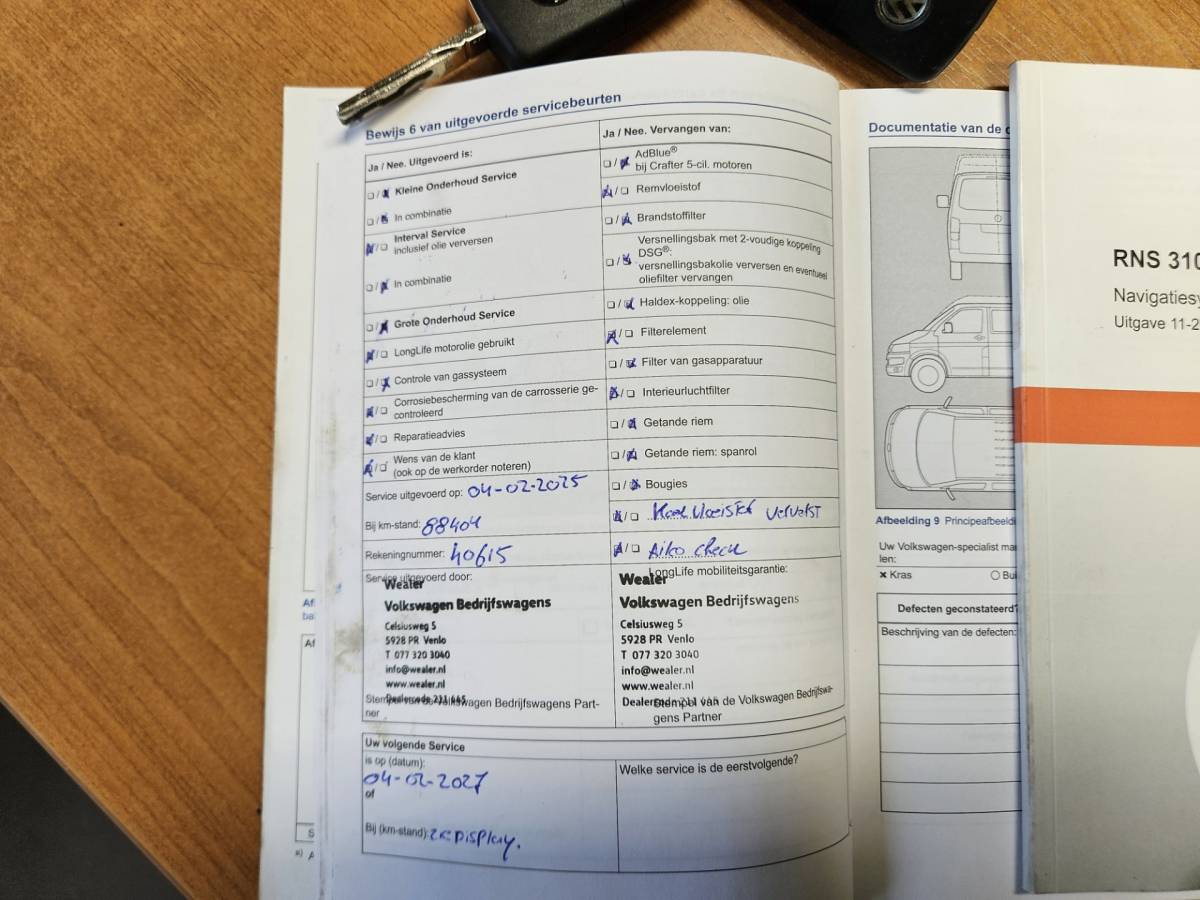 Bewijs 6 van uitgevoerde servicebeurten
Ja / Nee. Uitgevoerd is:
❑ / ❑ Kleine Onderhoud Service
❑ / ❑ In combinatie
❑ / ❑ Interval Service
inclusief olie verversen
❑ / ❑ In combinatie
❑ / ❑ Grote Onderhoud Service
❑ / ❑ LongLife motorolie gebruikt
❑ / ❑ Controle van gassysteem
❑ / ❑ Corrosiebescherming van de carrosserie ge-
controleerd
❑ / ❑ Reparatieadvies
❑ / ❑ Wens van de klant
(ook op de werkorder noteren)
Service uitgevoerd op: 04-02-2025
Bij km-stand: 88404
Rekeningnummer: 40615
Service uitgevoerd door:
Wealer
Volkswagen Bedrijfswagens
Celsiusweg 5
5928 PR Venlo
T 077 320 3040
info@wealer.nl
www.wealer.nl
Volkswagen Bedrijfswagens Part-
ner
Ja / Nee. Vervangen van:
❑ / ❑ AdBlue®
bij Crafter 5-cil. motoren
❑ / ❑ Remvloeistof
❑ / ❑ Brandstoffilter
❑ / ❑ Versnellingsbak met 2-voudige koppeling
DSG®:
versnellingsbakolie verversen en eventueel
oliefilter vervangen
❑ / ❑ Haldex-koppeling: olie
❑ / ❑ Filterelement
❑ / ❑ Filter van gasapparatuur
❑ / ❑ Interieurluchtfilter
❑ / ❑ Getande riem
❑ / ❑ Getande riem: spanrol
❑ / ❑ Bougies
❑ / ❑ Koelvloeistof ververst
❑ / ❑ Airco check
LongLife mobiliteitsgarantie:
Wealer
Volkswagen Bedrijfswagens
Celsiusweg 5
5928 PR Venlo
T 077 320 3040
info@wealer.nl
www.wealer.nl
Dealercode
Stempel van de Volkswagen Bedrijfswa-
gens Partner
Uw volgende Service
is op (datum):
04-02-2027
of
Bij (km-stand): ZIE DISPLAY.
Welke service is de eerstvolgende?
Documentatie van de
Afbeelding 9
Uw Volkswagen-specialist
len:
× Kras
Defecten geconstateerd?
Beschrijving van de defecten:
RNS 310
Uitgave